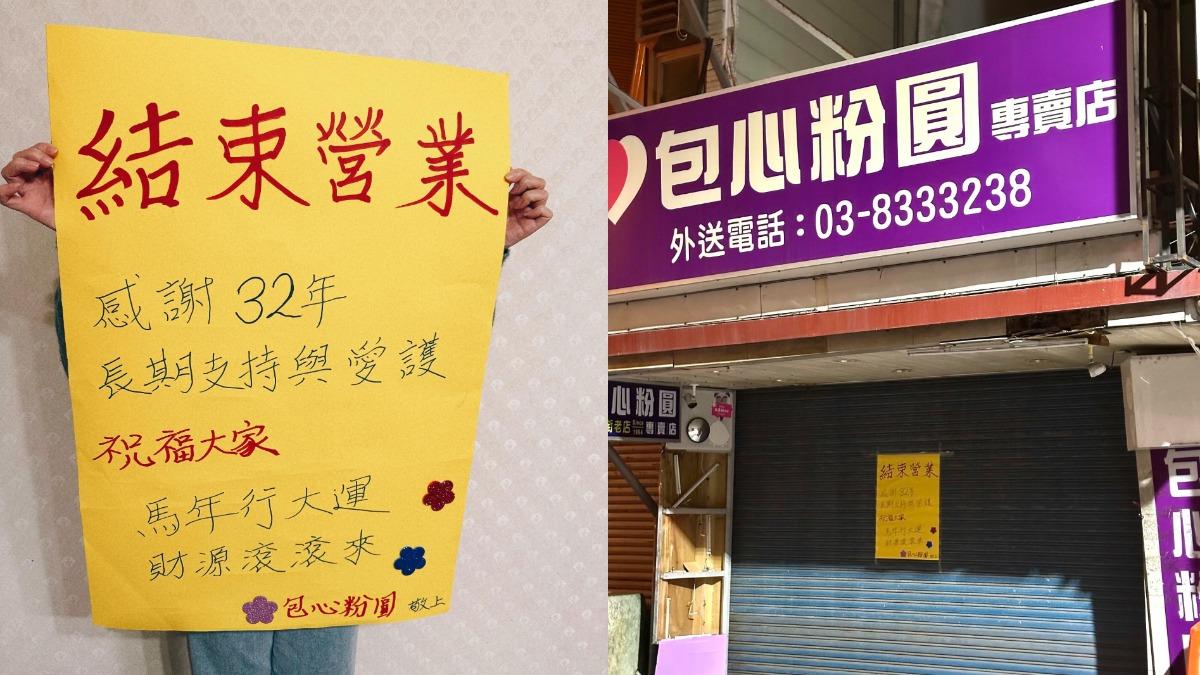 結束營業
感謝 32年
長期支持與愛護
祝福大家
馬年行大運
財源滾滾來
包心粉圓 敬上
包心粉圓專賣店
外送電話：03-8333238
心粉圓
街老店 Since 1984 專賣店
結束營業
感謝 32年
長期支持與愛護
祝福大家
馬年行大運
財源滾滾來
包心粉圓 敬上
包心粉